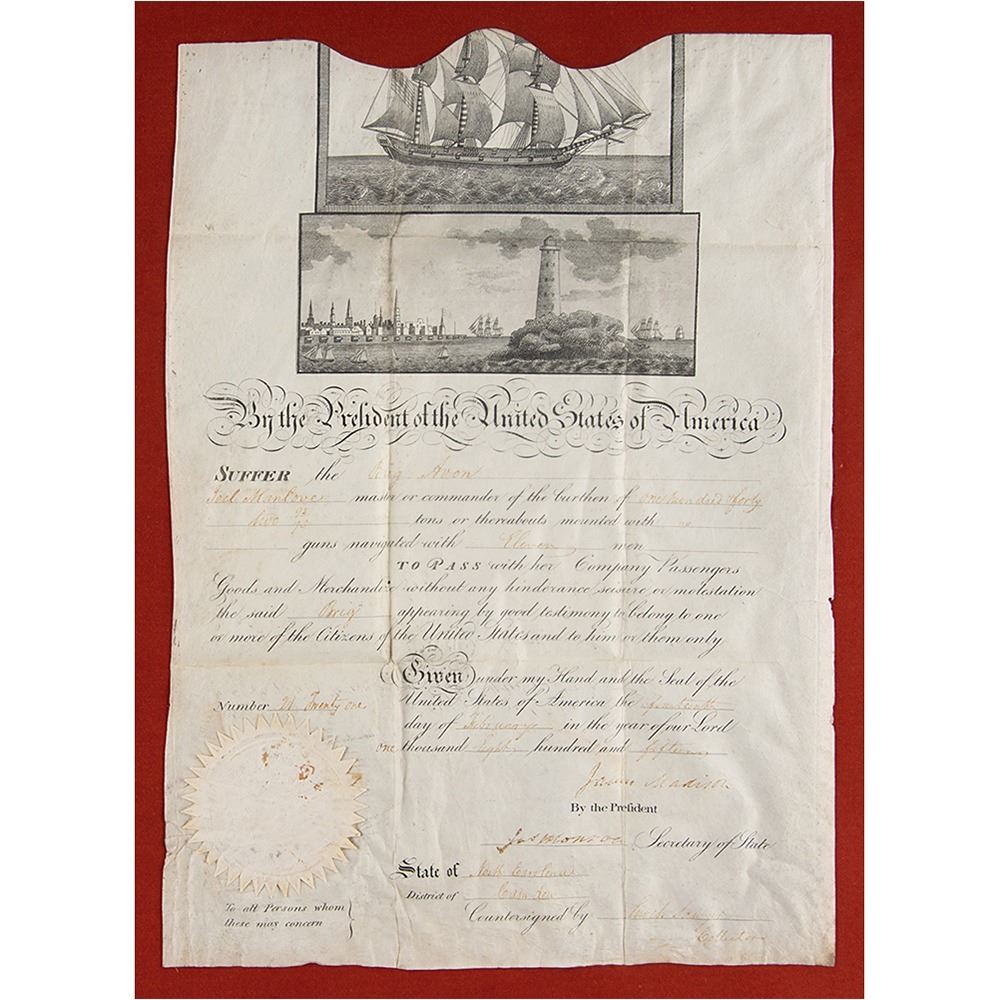 By the President of the United States of America
SUFFER the Brig Avon
Joel Manlove master or commander of the burthen of one hundred & forty
two 92/95 tons or thereabouts mounted with no
guns navigated with Eleven men
TO PASS with her Company Passengers
Goods and Merchandize without any hinderance seisure or molestation
the said Brig appearing by good testimony to belong to one
or more of the Citizens of the United States and to him or them only
Given under my Hand and the Seal of the
United States of America the
Number 21 Twenty one
day of February in the year of our Lord
one thousand eight hundred and fifteen
James Madison
By the President
Jas Monroe Secretary of State
State of North Carolina
District of Camden
To all Persons whom
these may concern
Countersigned by
Collector